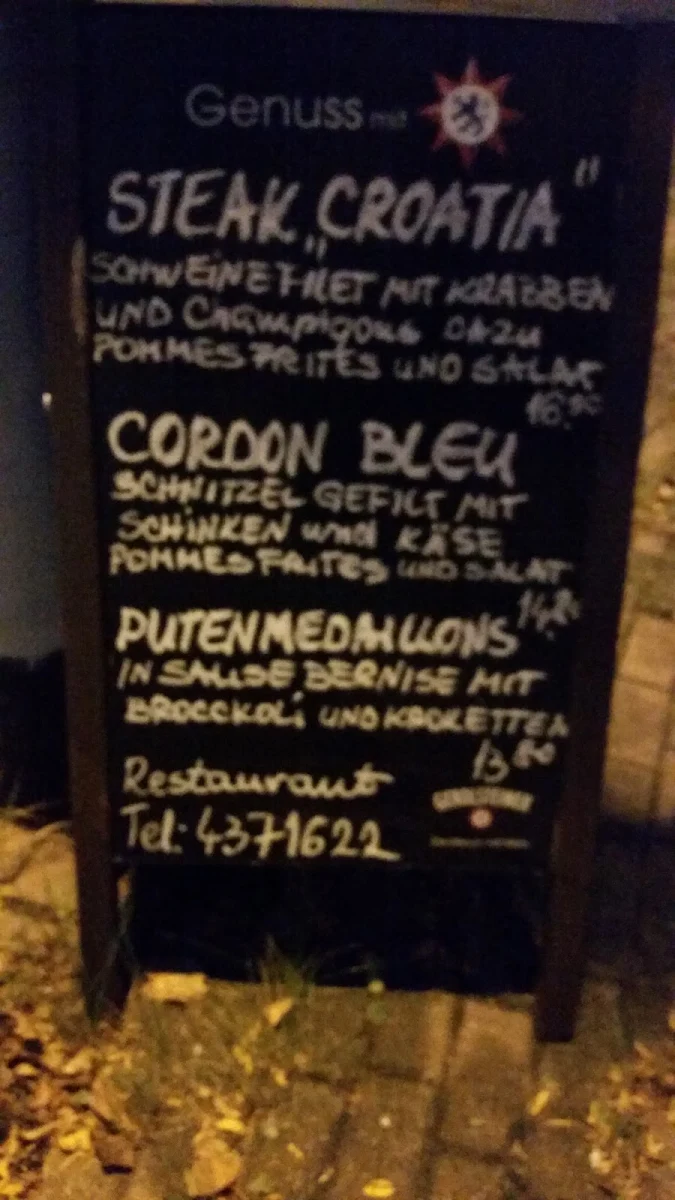 Genuss mit
STEAK „CROATIA"
SCHWEINEFILET MIT KRABBEN
UND Champigons DAZU
POMMES FRITES UND SALAT
16.90
CORDON BLEU
SCHNITZEL GEFILT MIT
SCHINKEN und KÄSE
POMMES FRITES UND SALAT
PUTENMEDAILLONS
IN SAUSE BERNISE MIT
BROCCKOLI UND KROKETTEN
13.80
Restaurant
Tel: 4371622
GEROLSTEINER